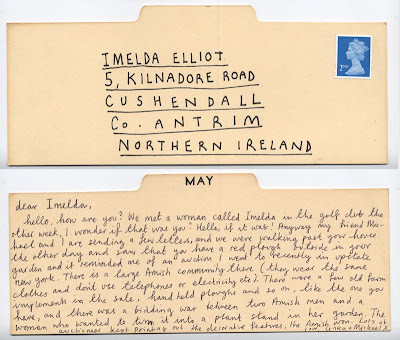 IMELDA ELLIOT
5, KILNADORE ROAD
CUSHENDALL
Co. ANTRIM
NORTHERN IRELAND
2ND
MAY
dear Imelda,
hello, how are you? We met a woman called Imelda in the golf club the
other week, I wonder if that was you? Hello, if it was! Anyway my friend Mi-
hael and I are sending a few letters, and we were walking past your house
the other day and saw that you have a red plough outside in your
garden and it reminded me of an auction I went to recently in upstate
new york. There is a large Amish community there (they wear the same
clothes and don't use telephones or electricity etc). There were a few old farm
implements in the sale, hand held ploughs and so on, like the one you
have, and there was a bidding war between two Amish men and a
woman who wanted to turn it into a plant stand in her garden. The
auctioneer kept pointing out the decorative features, the Amish won. Lots of
love, & Michael